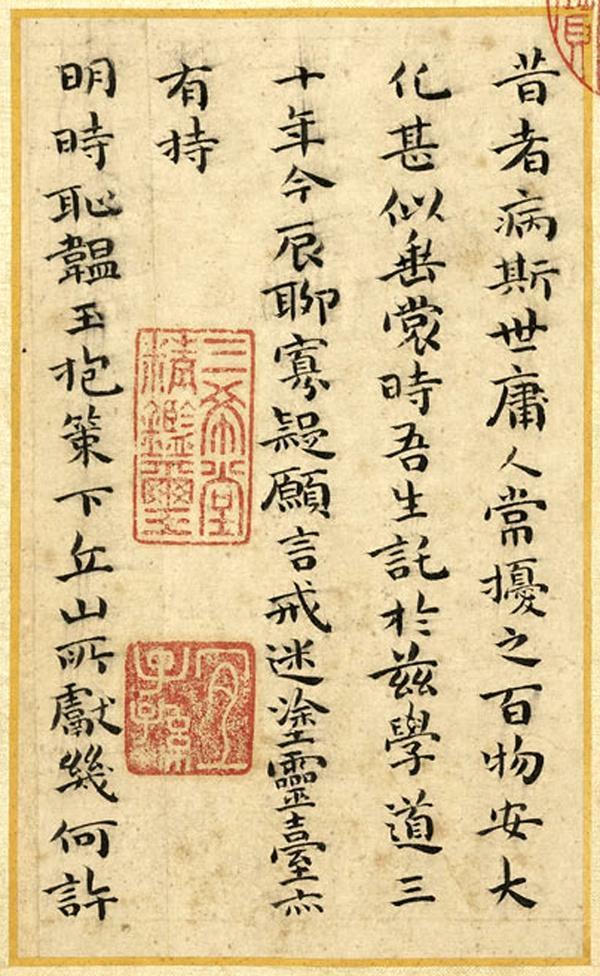 昔者病斯世庸人常擾之百物安大
化甚似垂裳時吾生託於茲學道三
十年今辰聊寡疑願言戒迷塗靈臺亦
有持
明時恥韞玉抱策下丘山所獻幾何許
三希堂精鑑璽
宜子孫